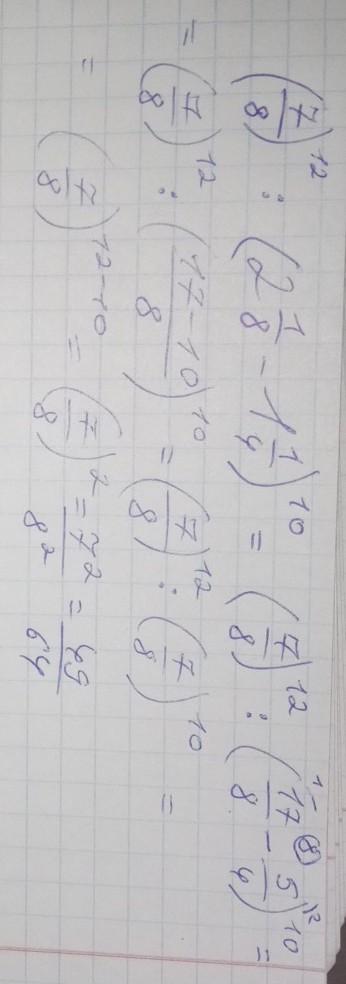 (7/8)^12 : (2 1/8 - 1 1/4)^10 = (7/8)^12 : (17/8 ^1- ⑧ - 5/4 ^2)^10 =
= (7/8)^12 : ((17-10)/8)^10 = (7/8)^12 : (7/8)^10 =
= (7/8)^12-10 = (7/8)^2 = 7^2/8^2 = 49/64